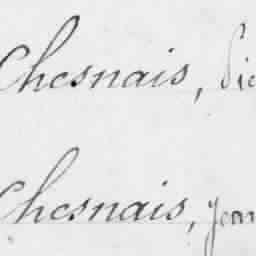 Chesnais,
Chesnais,